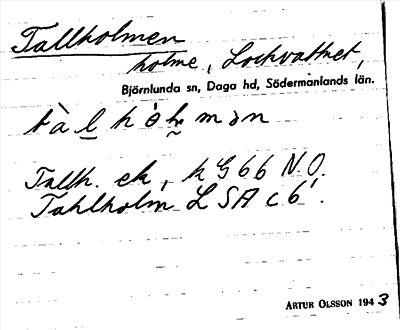 Tallholmen
holme, Lockvattnet,
Björnlunda sn, Daga hd, Södermanlands län.
tàl hòlmən
Tallh. ek, k G66 N.O.
Tahlholm L SA c 6'.
ARTUR OLSSON 1943